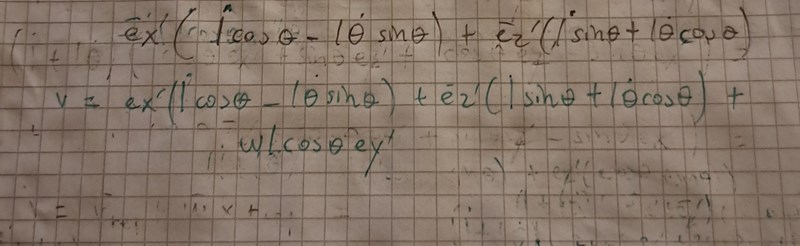 ēx' (l̇ cosθ - lθ̇ sinθ) + ēz' (l̇ sinθ + lθ̇ cosθ)
v = ex' (l̇ cosθ - lθ̇ sinθ) + ēz' (l̇ sinθ + lθ̇ cosθ) +
ωl cosθ ey'